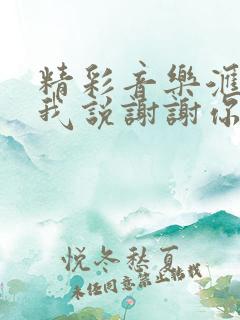 精彩音樂滙
我說謝謝你
悅冬愁夏
未经同意禁止转载